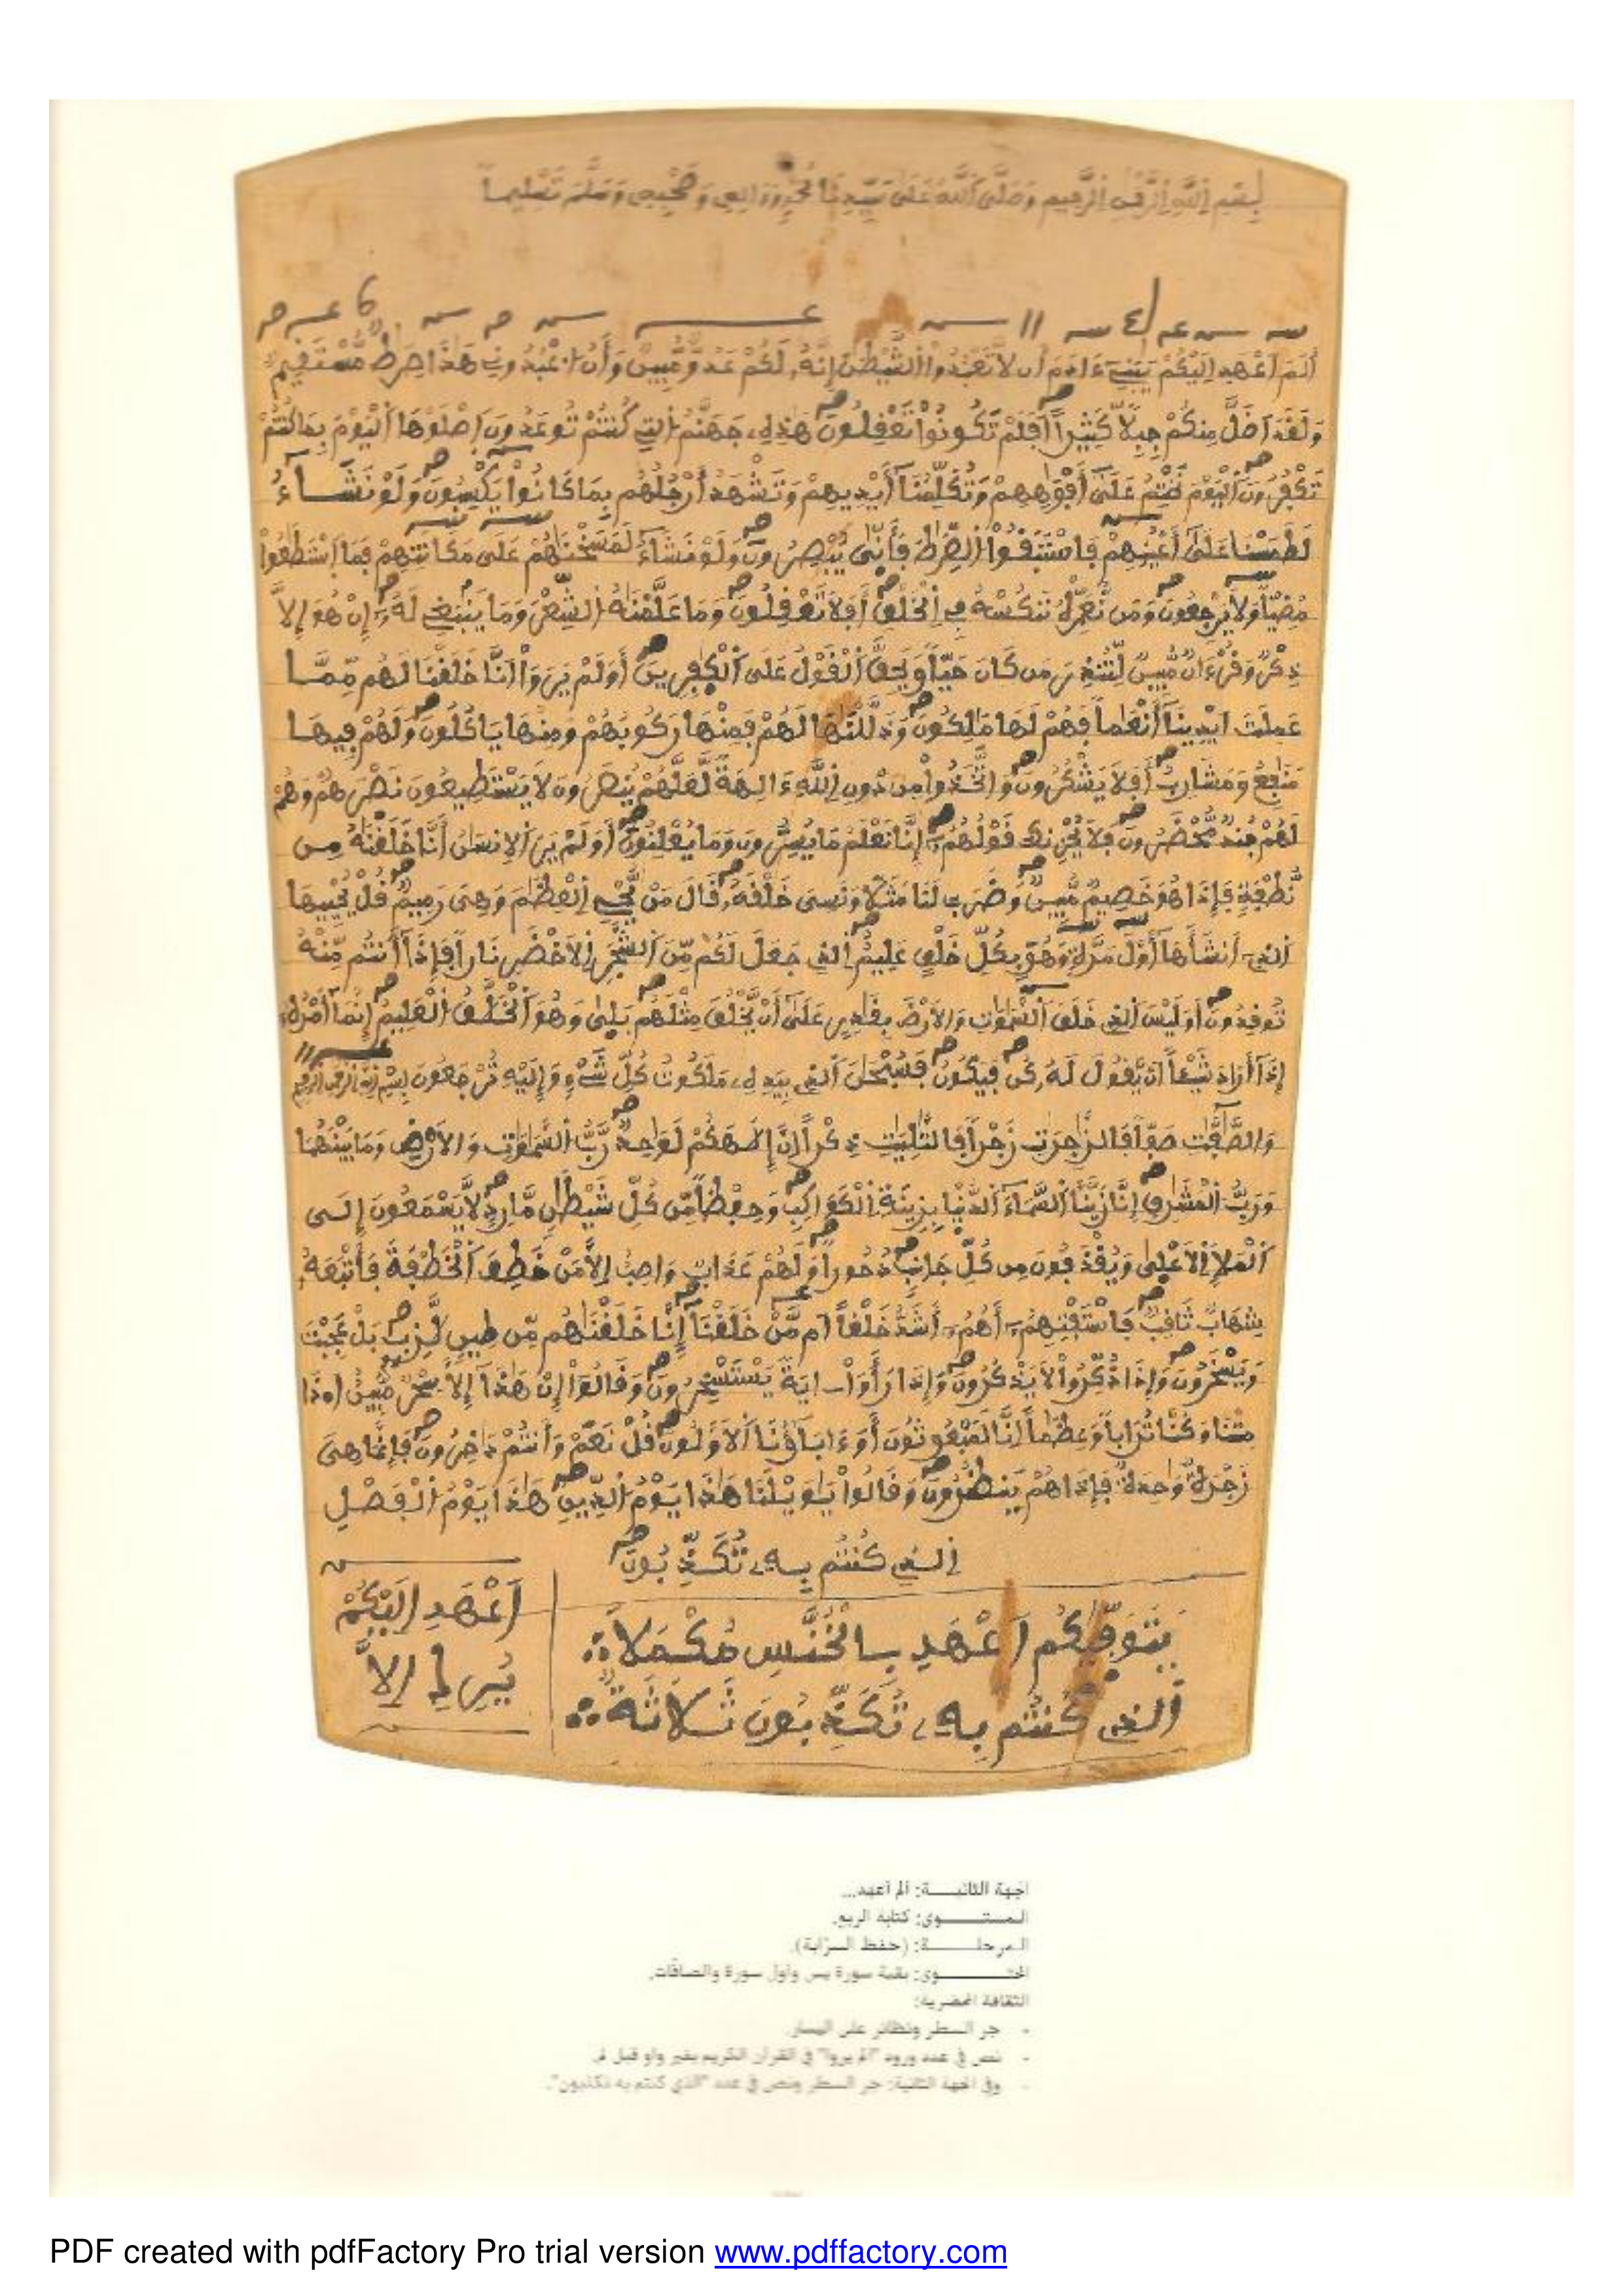 بسم الله الرحمن الرحيم وصلى الله على سيدنا محمد وءاله وصحبه وسلم تسليما
ألم اعهد إليكم يبني ءادم أن لا تعبدوا الشيطن إنه لكم عدو مبين وأن اعبدوني هذا صرط مستقيم
ولقد اضل منكم جبلا كثيرا أفلم تكونوا تعقلون هذه جهنم التي كنتم توعدون اصلوها اليوم بما كنتم
تكفرون اليوم نختم على أفوههم وتكلمنا أيديهم وتشهد أرجلهم بما كانوا يكسبون ولو نشاء
لطمسنا على أعينهم فاستبقوا الصرط فأنى يبصرون ولو نشاء لمسخنهم على مكانتهم فما استطعوا
مضيا ولا يرجعون ومن نعمره ننكسه في الخلق أفلا تعقلون وما علمنه الشعر وما ينبغي له إن هو إلا
ذكر وقرءان مبين لتنذر من كان حيا ويحق القول على الكفرين أولم يروا انا خلقنا لهم مما
عملت ايدينا أنعما فهم لها ملكون وذللنها لهم فمنها ركوبهم ومنها ياكلون ولهم فيها
منفع ومشارب أفلا يشكرون واتخذوا من دون الله ءالهة لعلهم ينصرون لا يستطيعون نصرهم وهم
لهم جند محضرون فلا يحزنك قولهم إنا نعلم ما يسرون وما يعلنون أولم ير الانسن أنا خلقنه من
نطفة فإذا هو خصيم مبين وضرب لنا مثلا ونسي خلقه قال من يحي العظم وهي رميم قل يحييها
الذي أنشأها أول مرة وهو بكل خلق عليم الذي جعل لكم من الشجر الاخضر نارا فإذا أنتم منه
توقدون أوليس الذي خلق السموت والارض بقدر على أن يخلق مثلهم بلى وهو الخلق العليم إنما أمره
إذا أراد شيئا ان يقول له كن فيكون فسبحن الذي بيده ملكوت كل شيء وإليه ترجعون بسم الله الرحمن الرحيم
والصفت صفا فالزجرت زجرا فالتليت ذكرا إن إلهكم لوحد رب السموت والارض وما بينهما
ورب المشرق إنا زينا السماء الدنيا بزينة الكواكب وحفظا من كل شيطن مارد لا يسمعون إلى
الملإ الاعلى ويقذفون من كل جانب دحورا ولهم عذاب واصب إلا من خطف الخطفة فأتبعه
شهاب ثاقب فاستفتهم أهم أشد خلقا ام من خلقنا إنا خلقنهم من طين لازب بل عجبت
ويسخرون وإذا ذكروا لا يذكرون وإذا رأوا اية يستسخرون وقالوا إن هذا إلا سحر مبين اهذا
متنا وكنا ترابا وعظما إنا لمبعوثون أو ءاباؤنا الاولون قل نعم وأنتم داخرون فإنما هي
زجرة وحدة فإذا هم ينظرون وقالوا يويلنا هذا يوم الدين هذا يوم الفصل
الذي كنتم به تكذبون
يتوفيكم اعهد بالخنس مكملا
الذي كنتم به تكذبون ثلاثة
اعهد إليكم
إلا
الجهة الثانيـــة: ألم أعهد...
المستـــوى: كتابة الربع.
المرحلـــة: (حفظ السرابة).
المحتـــوى: بقية سورة يس وأول سورة والصافات.
الثقافة المحضرية:
- جر السطر ونظائر على اليسار.
- نص في عدد ورود "ألم يروا" في القرآن الكريم بغير واو قبل لم
- وفي الجهة الثانية: جر السطر ونص في عدد "الذي كنتم به تكذبون".
PDF created with pdfFactory Pro trial version www.pdffactory.com